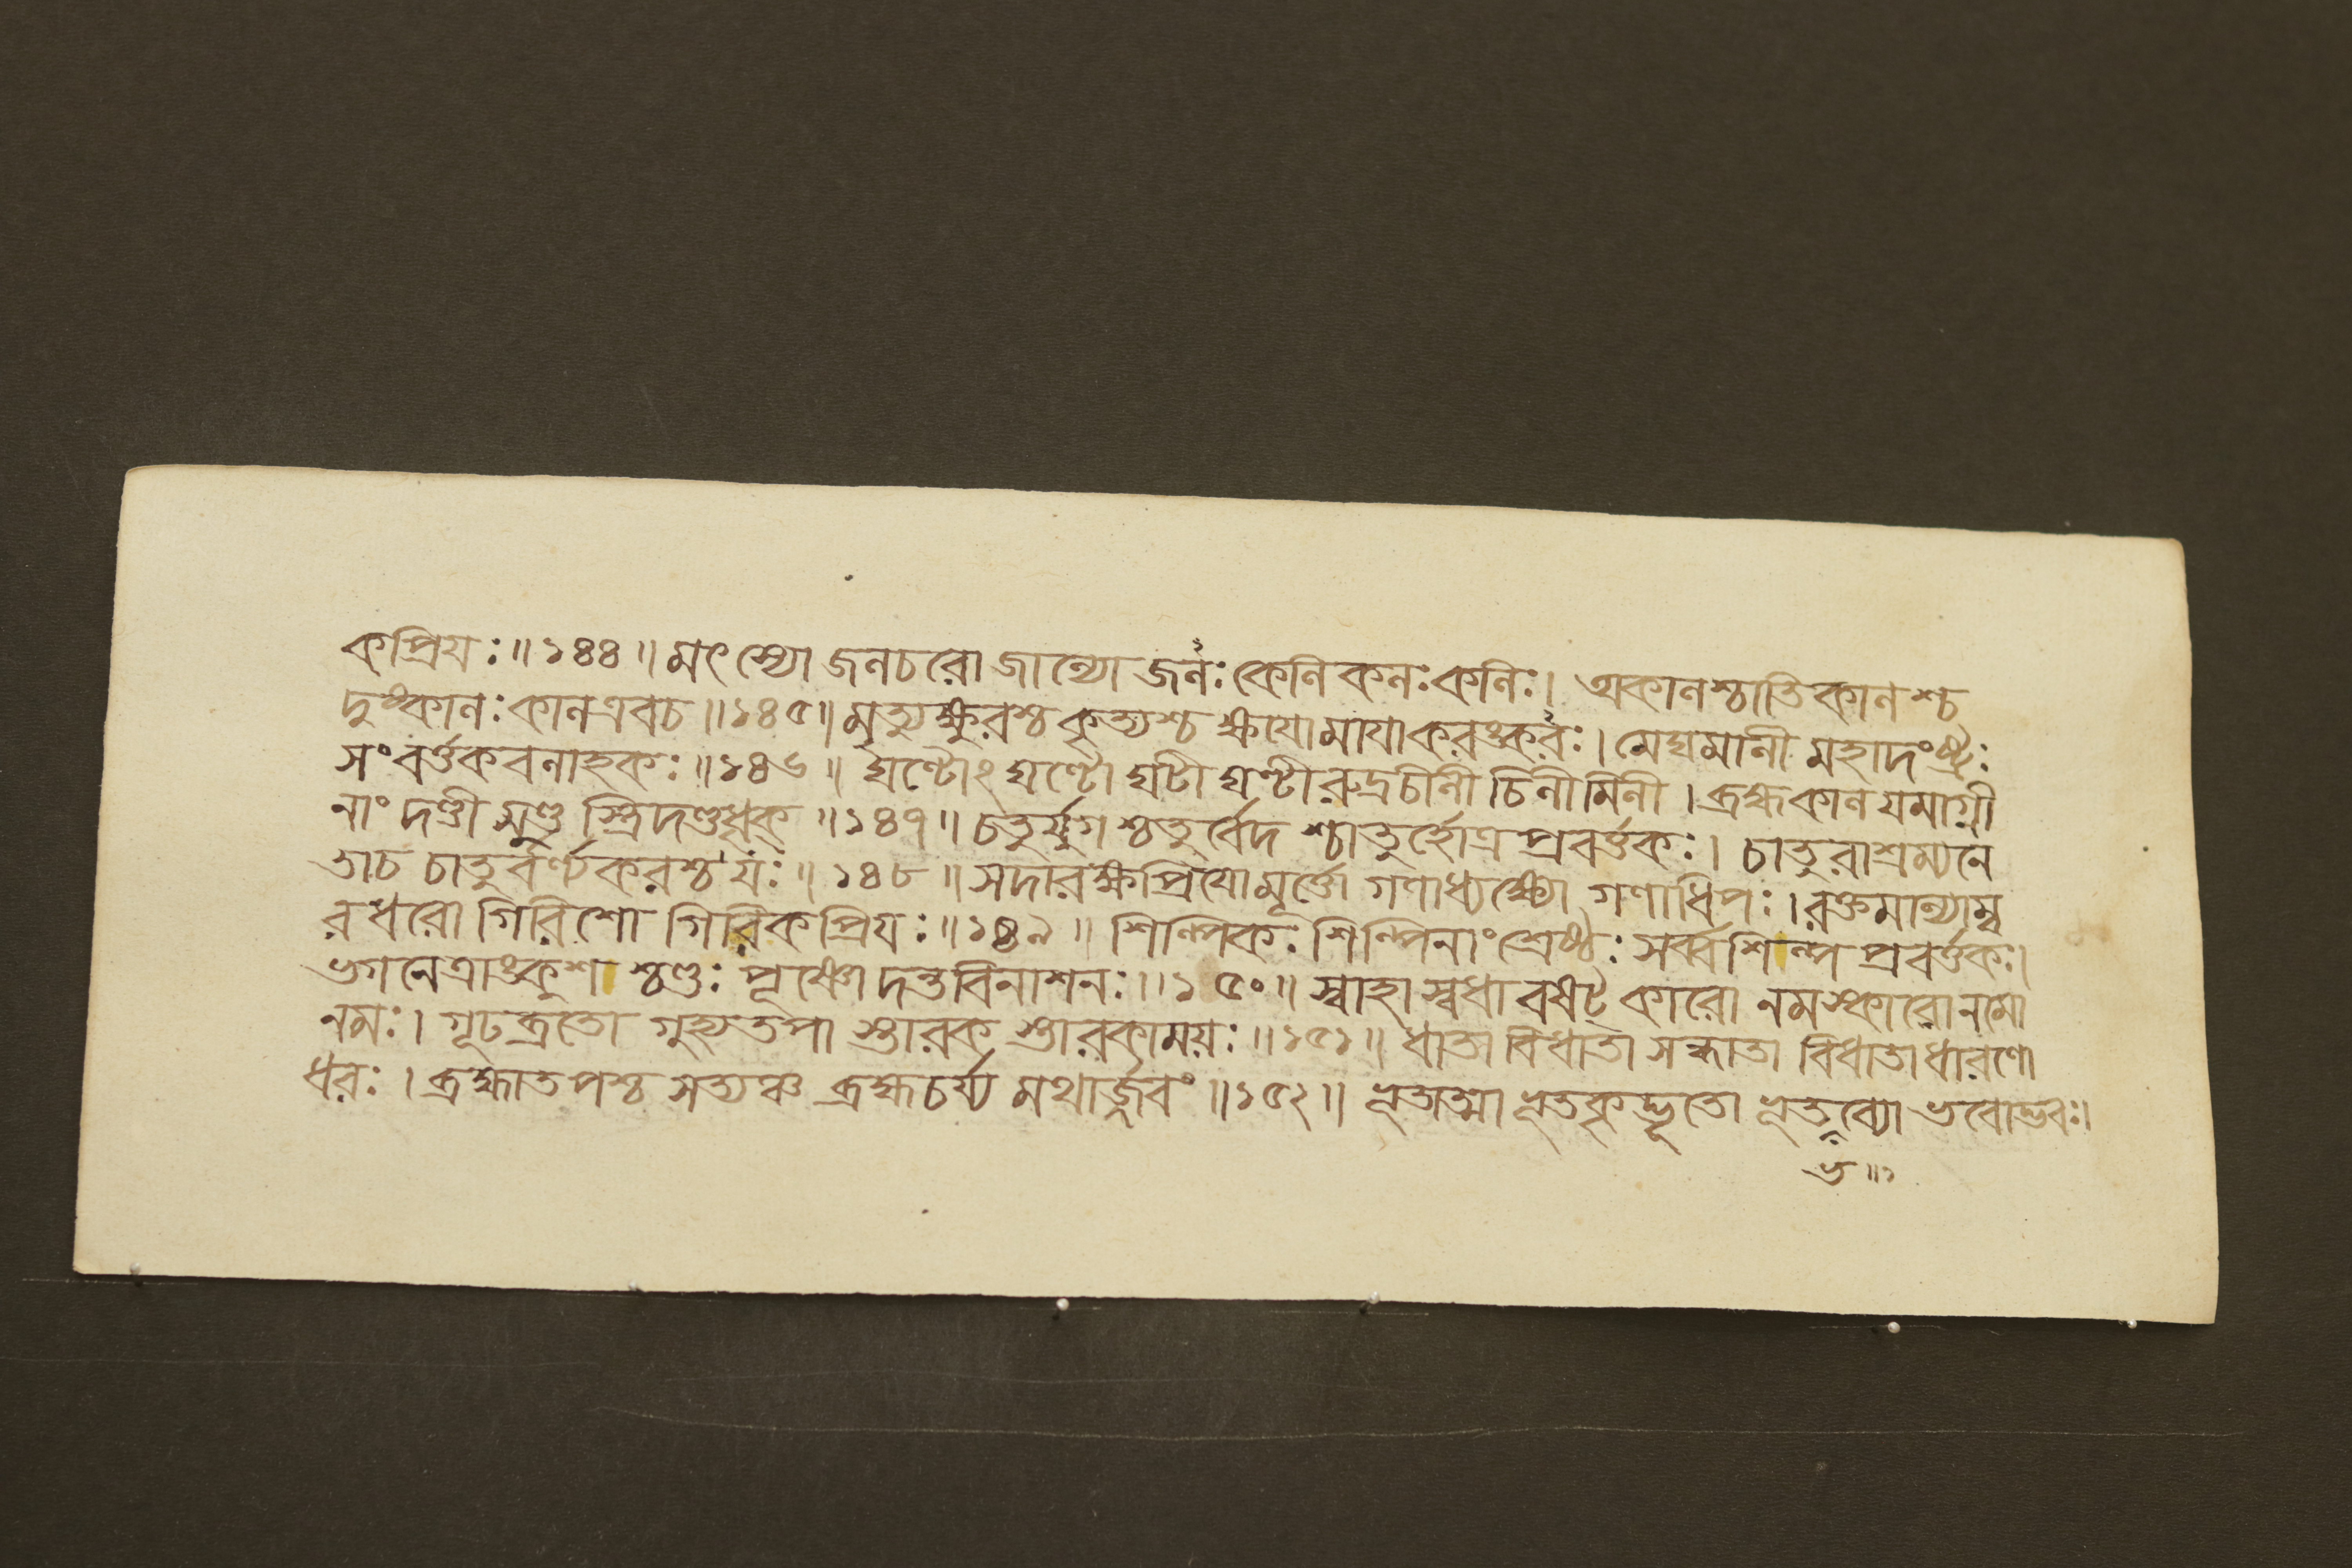 কপ্রিয়ঃ॥১৪৪॥ মৎস্যো জনচরো জান্যো জনঃ কেনি কনঃ কনিঃ। অকানশ্চাতিকানশ্চ
দুষ্কানঃ কান এবচ॥১৪৫॥ মৃত্যুক্ষুরশ্চ কৃত্যশ্চ ক্ষযোমাযাকরঙ্করঃ। মেঘমানী মহাদংষ্ট্রঃ
সংবর্ত্তকবনাহকঃ॥১৪৬॥ ঘণ্টোঽঘণ্টো ঘটী ঘণ্টী রুদ্রচীনী চিনীমিনী। ব্রহ্মকানযমাগ্নী
নাং দণ্ডী মুণ্ড স্ত্রিদণ্ডধৃক্ ॥১৪৭॥ চতুর্যুগশ্চতুর্বেদ শ্চাতুর্হোত্র প্রবর্ত্তকঃ। চাতুরাশ্রম্যনে
তাচ চাতুর্বর্ণ্যকরশ্চ যঃ॥১৪৮॥ সদারক্ষপ্রিযোমূর্ত্তো গণাধ্যক্ষ্যো গণাধিপঃ। রক্তমান্যাম্ব
রধরো গিরিশো গিরিকপ্রিয়ঃ॥১৪৯॥ শিল্পিকঃ শিল্পিনাং শ্রেষ্ঠঃ সর্ব্বশিল্প প্রবর্ত্তকঃ।
ভগনেত্রাঙ্কুশ শ্চণ্ডঃ পূষ্ণো দন্তবিনাশনঃ॥১৫০॥ স্বাহা স্বধা বষট্ কারো নমস্কারো নমো
নমঃ। গূঢব্রতো গুহ্যতপা স্তারক স্তারকাময়ঃ॥১৫১॥ ধাতা বিধাতা সন্ধাতা বিধাতাধারণো
ধরঃ। ব্রহ্মাতপশ্চ সত্যঞ্চ ব্রহ্মচর্য্য মথার্জ্জবং॥১৫২॥ ভূতাত্মা ভূতকৃদ্ভূতো ভূতব্যো ভবোদ্ভবঃ।
ভ॥১